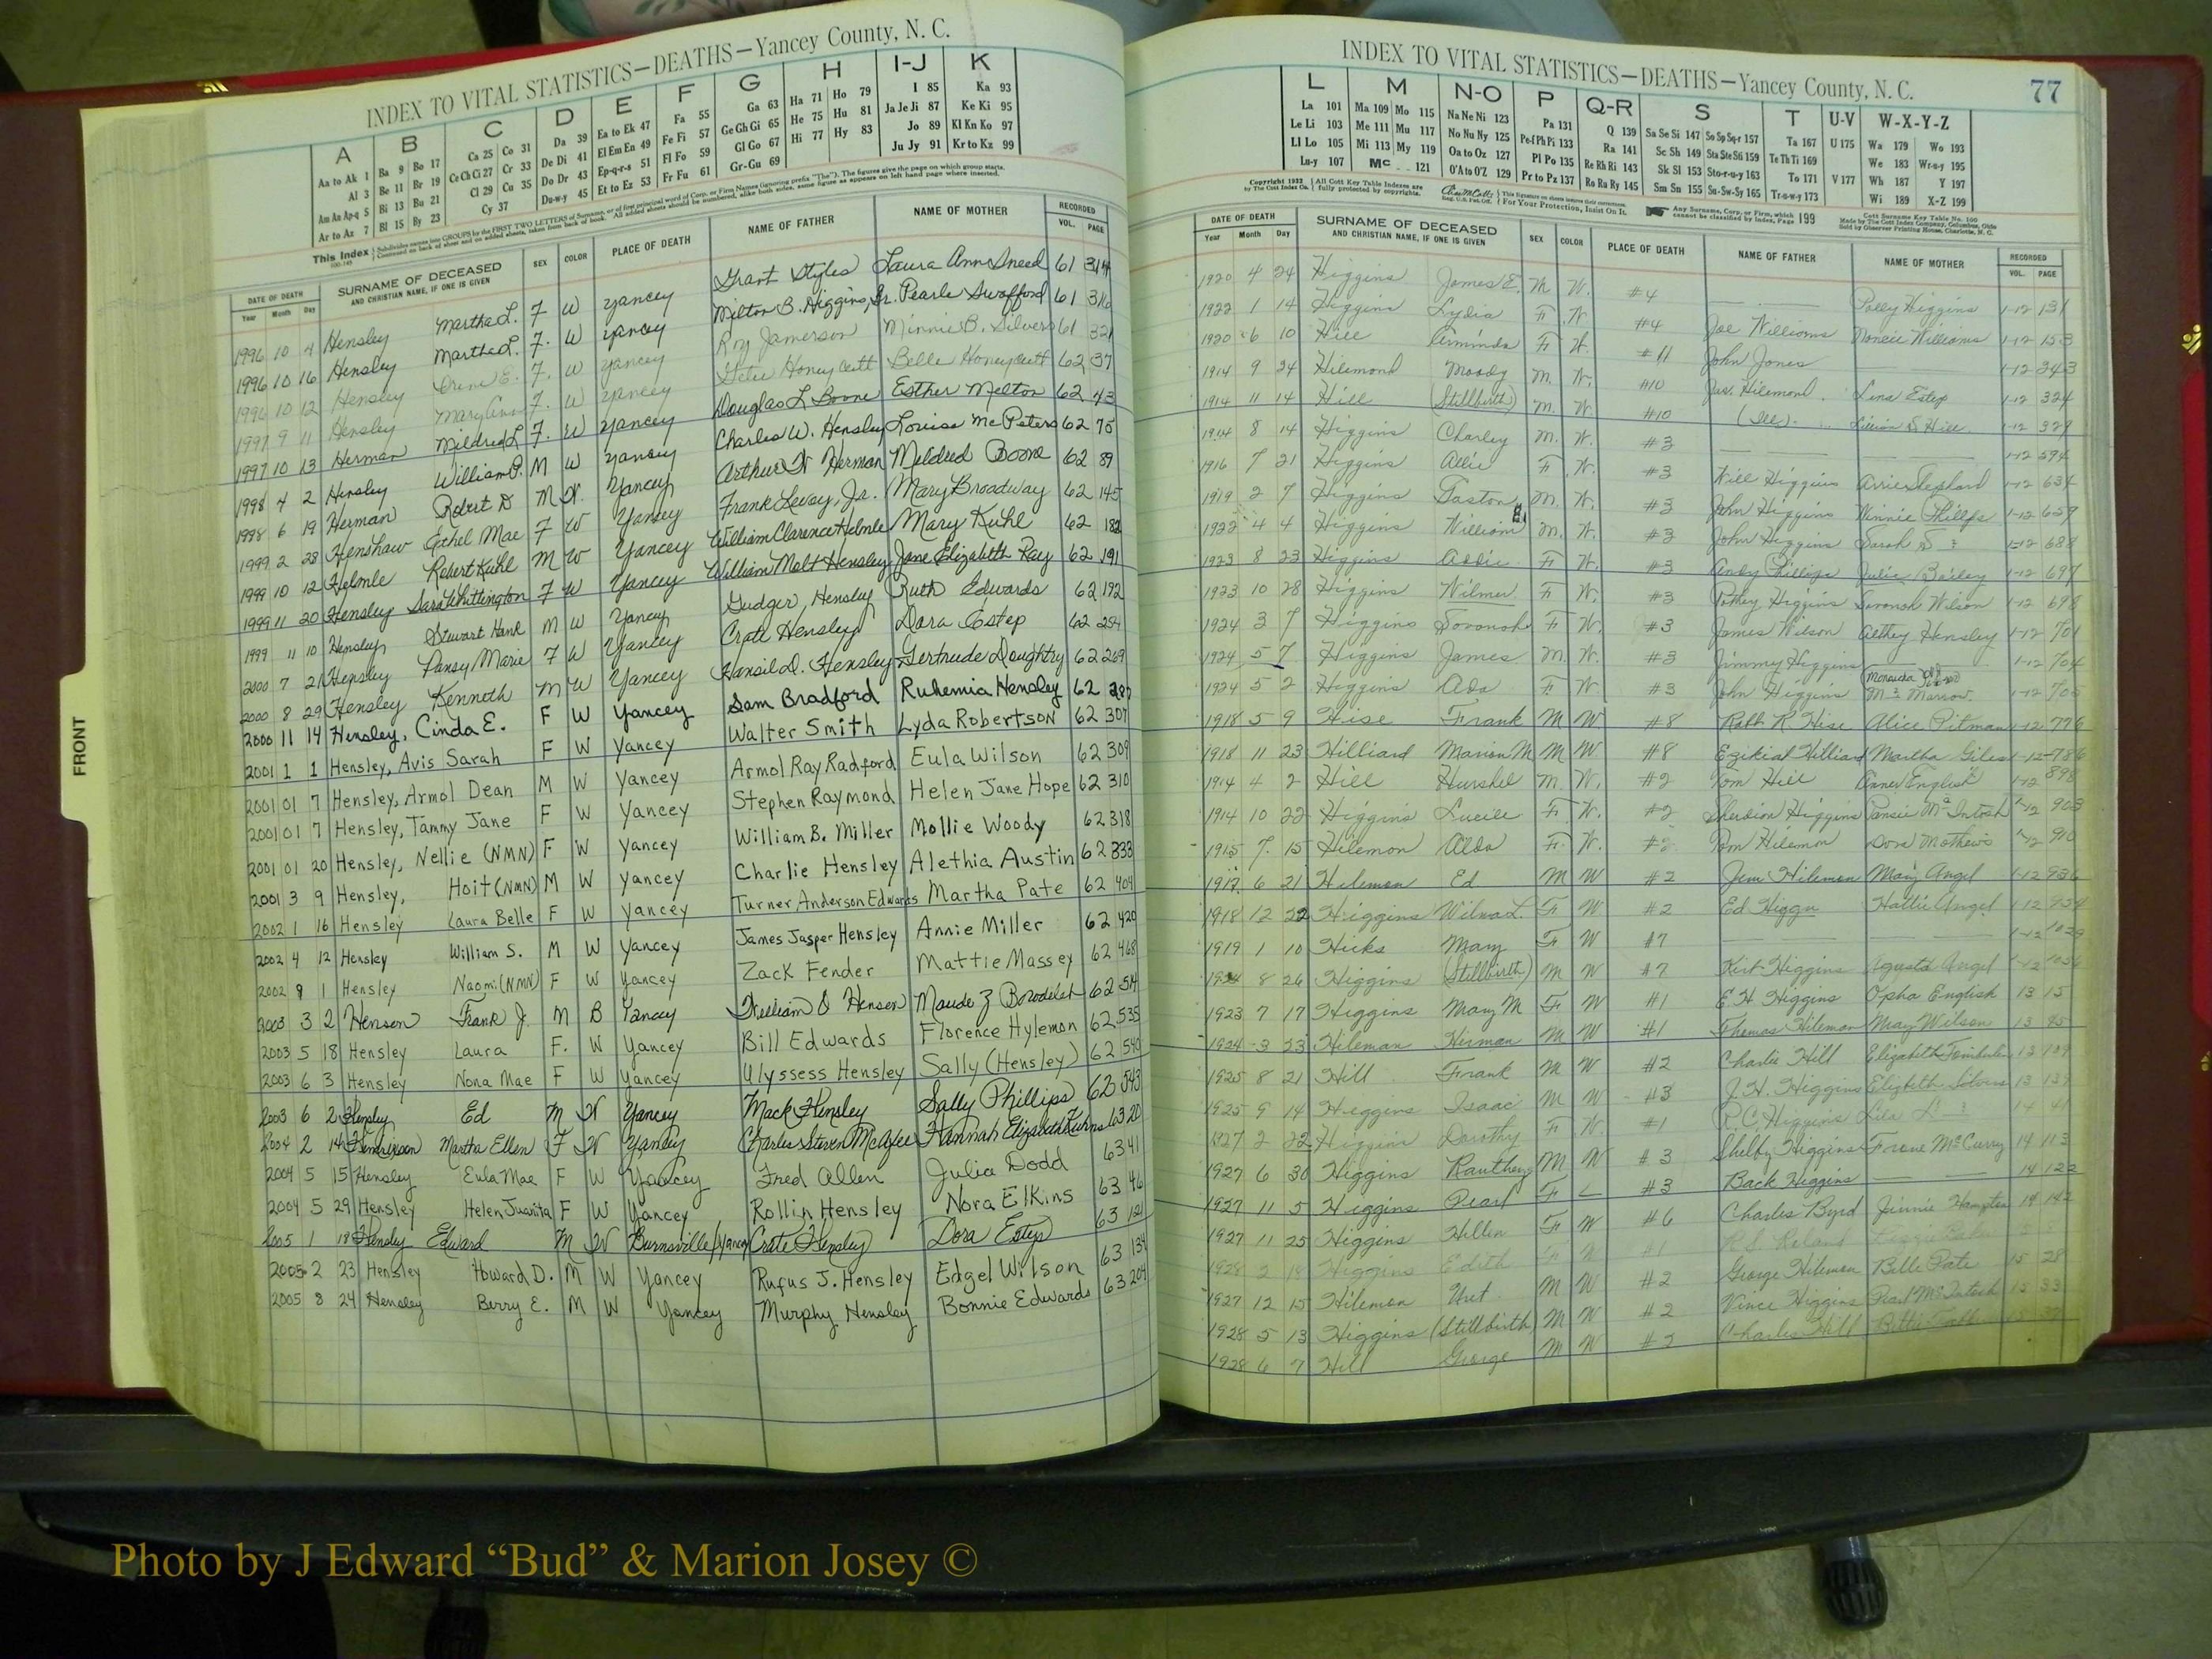 INDEX TO VITAL STATISTICS—DEATHS—Yancey County, N. C.
A B C D E F G H I-J K
Aa to Ak 1 Ba 9 Bo 17 Ca 25 Co 31 Da 39 Ea to Ek 47 Fa 55 Ga 63 Ha 71 Ho 79 I 85 Ka 93
Al 3 Be 11 Br 19 Ce Ch Ci 27 Cr 33 De Di 41 El Em En 49 Fe Fi 57 Ge Gh Gi 65 He 75 Hu 81 Ja Je Ji 87 Ke Ki 95
Am An Ap-q 5 Bi 13 Bu 21 Cl 29 Cu 35 Do Dr 43 Ep-q-r-s 51 Fl Fo 59 Gl Go 67 Hi 77 Hy 83 Jo 89 Kl Kn Ko 97
Ar to Az 7 Bl 15 By 23 Cy 37 Du-w-y 45 Et to Ez 53 Fr Fu 61 Gr-Gu 69 Ju Jy 91 Kr to Kz 99
This Index
DATE OF DEATH SURNAME OF DECEASED AND CHRISTIAN NAME, IF ONE IS GIVEN SEX COLOR PLACE OF DEATH NAME OF FATHER NAME OF MOTHER RECORDED
Year Month Day VOL. PAGE
1996 10 4 Hensley Martha L. F W Yancey Grant Styles Laura Ann Sneed 61 314
1996 10 16 Hensley Martha L. F. W Yancey Milton B. Higgins, Sr. Pearle Swofford 61 316
1996 10 12 Hensley E. F. W Yancey Roy Jamerson Minnie B. Silvers 61 321
1997 9 11 Hensley Mary F. W Yancey Honeycutt Belle Honeycutt 62 37
1997 10 13 Herman Mildred L F. W Yancey Douglas L Boone Esther Melton 62 43
1998 4 2 Hensley William P. M W Yancey Charles W. Hensley Louise McPeters 62 75
1998 6 19 Herman Robert D M W. Yancey Arthur W Herman Mildred Boone 62 89
1999 2 23 Henshaw Ethel Mae F W Yancey Frank Levay, Jr. Mary Broadway 62 145
1999 10 12 Helmle Robert Kuhl M W Yancey William Clarence Helmle Mary Kuhl 62 182
1999 11 20 Hensley Sara Whittington F W Yancey William Malt Hensley Jane Elizabeth Ray 62 191
1999 11 10 Hensley Stewart Hank M W Yancey Gudger Hensley Ruth Edwards 62 192
2000 7 21 Hensley Pansy Marie F W Yancey Crate Hensley Dora Estep 62 254
2000 8 29 Hensley Kenneth M W Yancey D. Hensley Gertrude Doughtry 62 269
2000 11 14 Hensley, Cinda E. F W Yancey Sam Bradford Ruhemia Hensley 62
2001 1 1 Hensley, Avis Sarah F W Yancey Walter Smith Lyda Robertson 62 307
2001 01 7 Hensley, Armol Dean M W Yancey Armol Ray Radford Eula Wilson 62 309
2001 01 7 Hensley, Tammy Jane F W Yancey Stephen Raymond Helen Jane Hope 62 310
2001 01 20 Hensley, Nellie (NMN) F W Yancey William B. Miller Mollie Woody 62 318
2001 3 9 Hensley, Hoit (NMN) M W Yancey Charlie Hensley Alethia Austin 62 333
2002 1 16 Hensley Laura Belle F W Yancey Turner Anderson Edwards Martha Pate 62 404
2002 4 12 Hensley William S. M W Yancey James Jasper Hensley Annie Miller 62 420
2002 8 1 Hensley Naomi (NMN) F W Yancey Zack Fender Mattie Massey 62 468
2003 3 2 Henson Frank J. M B Yancey William O Henson Maude Z 62 514
2003 5 18 Hensley Laura F. W Yancey Bill Edwards Florence Hylemon 62 535
2003 6 3 Hensley Nona Mae F W Yancey Ulyssess Hensley Sally (Hensley) 62 540
2003 6 2 Hensley Ed M W Yancey Mack Hensley Sally Phillips 62 543
2004 2 14 Henderson Martha Ellen F W Yancey Charles Steven McAfee Hannah Elizabeth Kuhns 63 20
2004 5 15 Hensley Eula Mae F W Yancey Fred Allen Julia Dodd 63 41
2004 5 29 Hensley Helen Juanita F W Yancey Rollin Hensley Nora Elkins 63 46
2005 1 18 Hensley Edward M W Burnsville/Yancey Crate Hensley Dora Estep 63 121
2005 2 23 Hensley Howard D. M W Yancey Rufus J. Hensley Edgel Wilson 63 134
2005 8 24 Hensley Berry E. M W Yancey Murphy Hensley Bonnie Edwards 63 204
FRONT
INDEX TO VITAL STATISTICS—DEATHS—Yancey County, N. C. 77
L M N-O P Q-R S T U-V W-X-Y-Z
La 101 Ma 109 Mo 115 Na Ne Ni 123 Pa 131 Q 139 Sa Se Si 147 So Sp Sq-r 157 Ta 167 U 175 Wa 179 Wo 193
Le Li 103 Me 111 Mu 117 No Nu Ny 125 Pe-f Ph Pi 133 Ra 141 Sc Sh 149 Sta Ste Sti 159 Te Th Ti 169 We 183 Wr-u-y 195
Ll Lo 105 Mi 113 My 119 Oa to Oz 127 Pl Po 135 Re Rh Ri 143 Sk Sl 153 Sto-r-u-y 163 To 171 V 177 Wh 187 Y 197
Lu-y 107 Mc 121 O'A to O'Z 129 Pr to Pz 137 Ro Ru Ry 145 Sm Sn 155 Su-Sw-Sy 165 Tr-u-w-y 173 Wi 189 X-Z 199
DATE OF DEATH SURNAME OF DECEASED AND CHRISTIAN NAME, IF ONE IS GIVEN SEX COLOR PLACE OF DEATH NAME OF FATHER NAME OF MOTHER RECORDED
Year Month Day VOL. PAGE
1920 4 24 Higgins James E. M W. #4 Polly Higgins 1-12 131
1922 1 14 Higgins Lydia F W #4 Joe Williams Williams 1-12 153
1920 6 10 Hill Arminda F W. #11 John Jones 1-12 343
1914 9 24 Hilemond Moody M. W. #10 Jas. Hilemond Lena Estep 1-12 324
1914 11 14 Hill (Stillbirth) M. W #10 (Ill) Lillian S Hill 1-12 329
8 14 Higgins Charley M. W. #3 1-12 594
1916 7 21 Higgins Allie F W. #3 Will Higgins 1-12 634
1919 2 7 Higgins Gaston M. W. #3 John Higgins Winnie Phillips 1-12 659
1922 4 4 Higgins William M. W. #3 John Higgins Sarah S ? 1-12 688
1923 8 23 Higgins Addie F W. #3 Andy Phillips Julie Bailey 1-12 697
1923 10 28 Higgins Wilmer F W. #3 Higgins Savanah Wilson 1-12 698
1924 3 7 Higgins Sovonoh F W. #3 James Wilson Althey Hensley 1-12 701
1924 5 7 Higgins James M. W. #3 Jimmy Higgins 1-12 704
1924 5 2 Higgins Ada F W #3 John Higgins 1-12 705
1918 5 9 Hise Frank M W #8 Robt R Hise Alice Pitman 1-12 776
1918 11 23 Hilliard Marion M M W #8 Ezikial Hilliard Martha Giles 1-12 786
1914 4 2 Hill Hurshel M. W. #2 Tom Hill English 1-12 898
1914 10 22 Higgins Lucile F W. #2 Higgins McIntosh 1-12 903
1915 7 15 Hilemon Alda F. W. Tom Hilemon Mathews 1-12 910
6 21 Hilemon Ed M W #2 Jim Hilemon Mary Angel 1-12
1918 12 22 Higgins Wilma L. F W #2 Ed Higgn Hattie Angel 1-12
1919 1 10 Hicks Mary F W #7
8 26 Higgins (Stillbirth) M W #7 Kirt Higgins Augusta Angel
1923 7 17 Higgins Mary M F W #1 E.H. Higgins Opha English 13 15
1924 3 23 Hileman Herman M W #1 Thomas Hileman May Wilson 13
1925 8 21 Hill Frank M W #2 Charlie Hill Elizabeth 13
1925 9 14 Higgins Isaac M W #3 J.H. Higgins Elizbeth 13
1927 2 22 Higgins Dorothy F W #1 R.C. Higgins Lula 14
1927 6 30 Higgins M W #3 Shelby Higgins McCurry 14 113
1927 11 5 Higgins Pearl F #3 Back Higgins 14 122
1927 11 25 Higgins Hillen F W #6 Charles Byrd Jinnie Hampton 14 142
1928 2 18 Higgins Edith #1
1927 12 15 Hilemon Uret M W #2 George Hilemon Belle Pate 15 28
1928 5 13 Higgins (Stillbirth) M W #2 Vince Higgins Pearl McIntosh 15 33
1928 6 7 Hill George M W #2 Charles Hill
Photo by J Edward “Bud” & Marion Josey ©